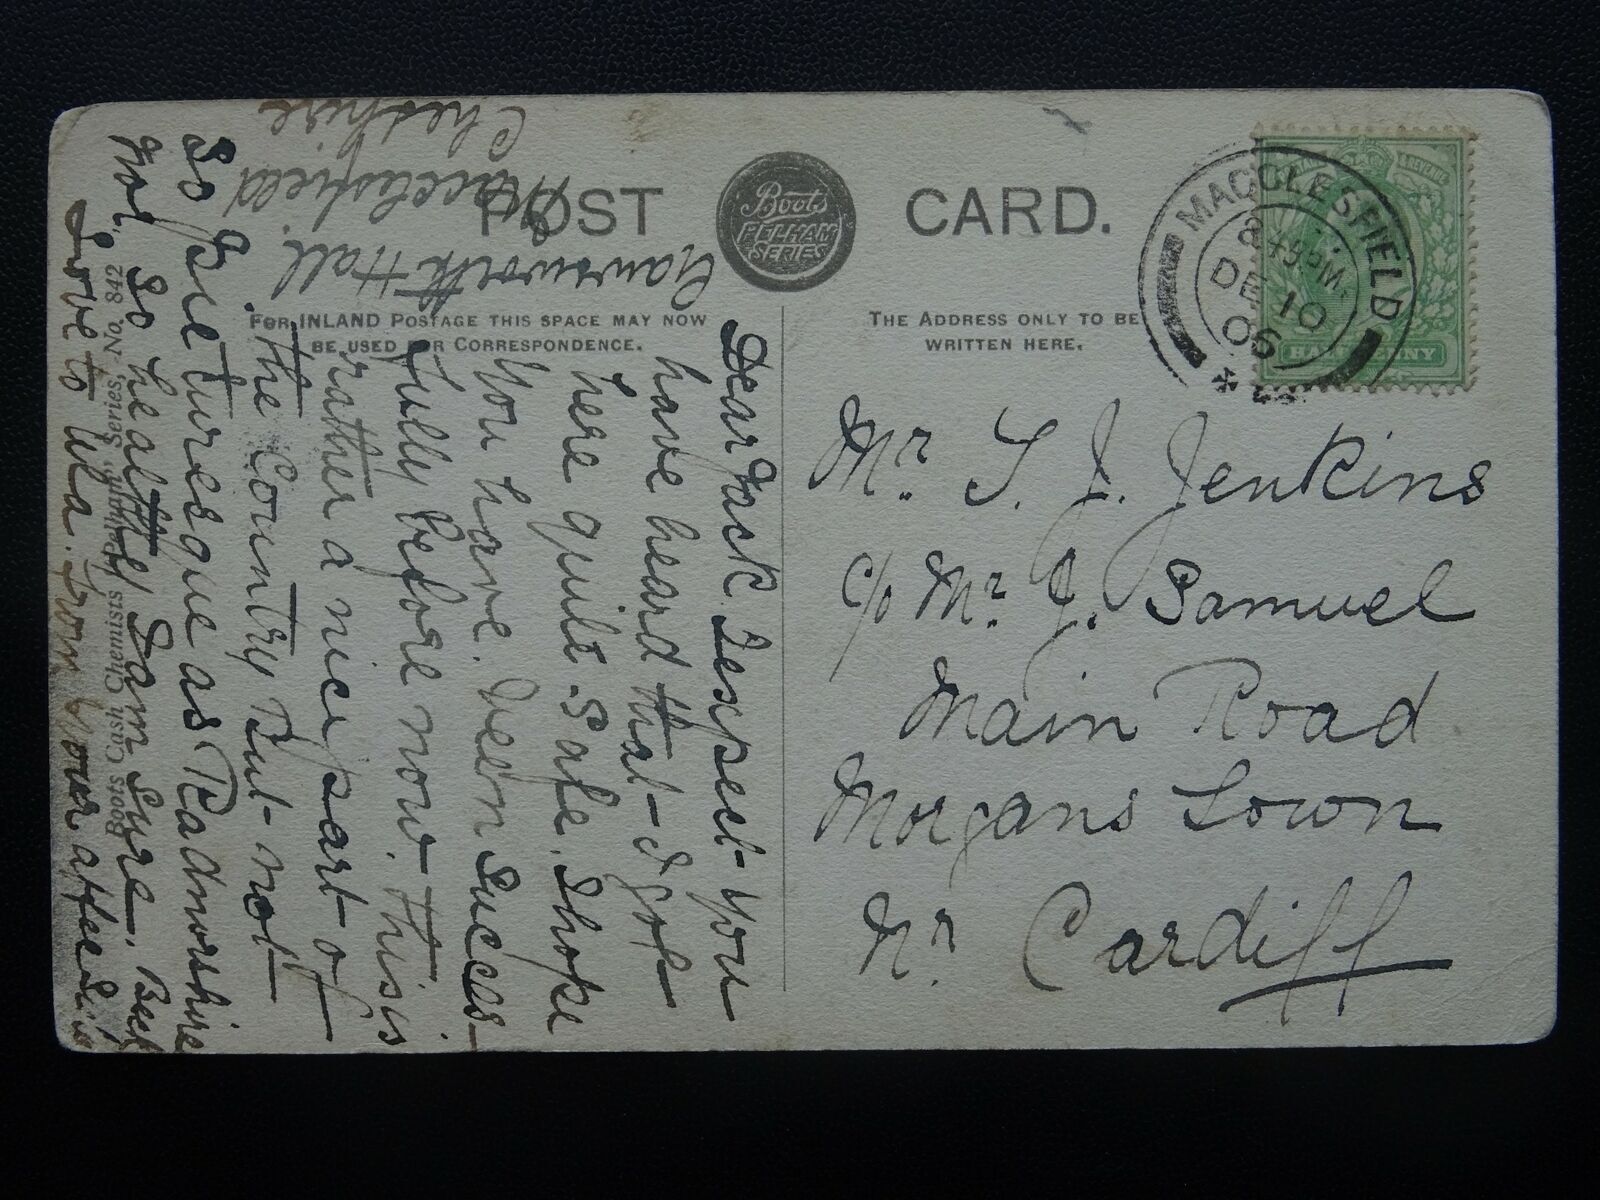 POST CARD.
Boots
PELHAM
SERIES
FOR INLAND POSTAGE THIS SPACE MAY NOW
BE USED FOR CORRESPONDENCE.
THE ADDRESS ONLY TO BE
WRITTEN HERE.
MACCLESFIELD
DE 10
06
HALFPENNY
Mr. T. J. Jenkins
c/o Mr. J. Samuel
Main Road
Morgans Town
Nr. Cardiff
Gawsworth Hall.
Nr Macclesfield
Cheshire
Dear Jack. I expect you
have heard that I got
here quite safe. I hope
you have been succes-
fully before now. This is
rather a nice part of
the Country But not
So Picturesque as Radnorshire
nor, So healthy I am Sure. Best
Love to Ula. From Your affec Sis
Boots Cash Chemists "Pelham" Series, No. 842